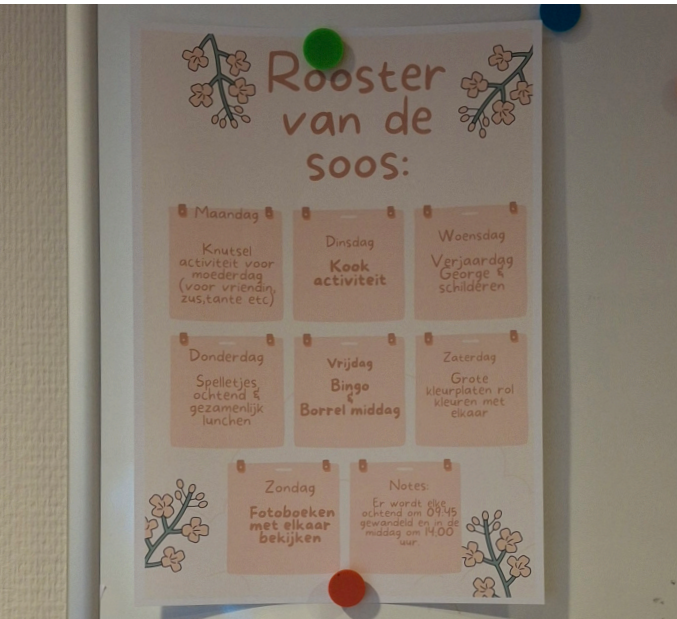 Rooster
van de
soos:
Maandag
Knutsel
activiteit voor
moederdag
(voor vriendin,
zus,tante etc)
Dinsdag
Kook
activiteit
Woensdag
Verjaardag
George &
schilderen
Donderdag
Spelletjes
ochtend &
gezamenlijk
lunchen
Vrijdag
Bingo
&
Borrel middag
Zaterdag
Grote
kleurplaten rol
kleuren met
elkaar
Zondag
Fotoboeken
met elkaar
bekijken
Notes:
Er wordt elke
ochtend om 09:45
gewandeld en in de
middag om 14.00
uur.